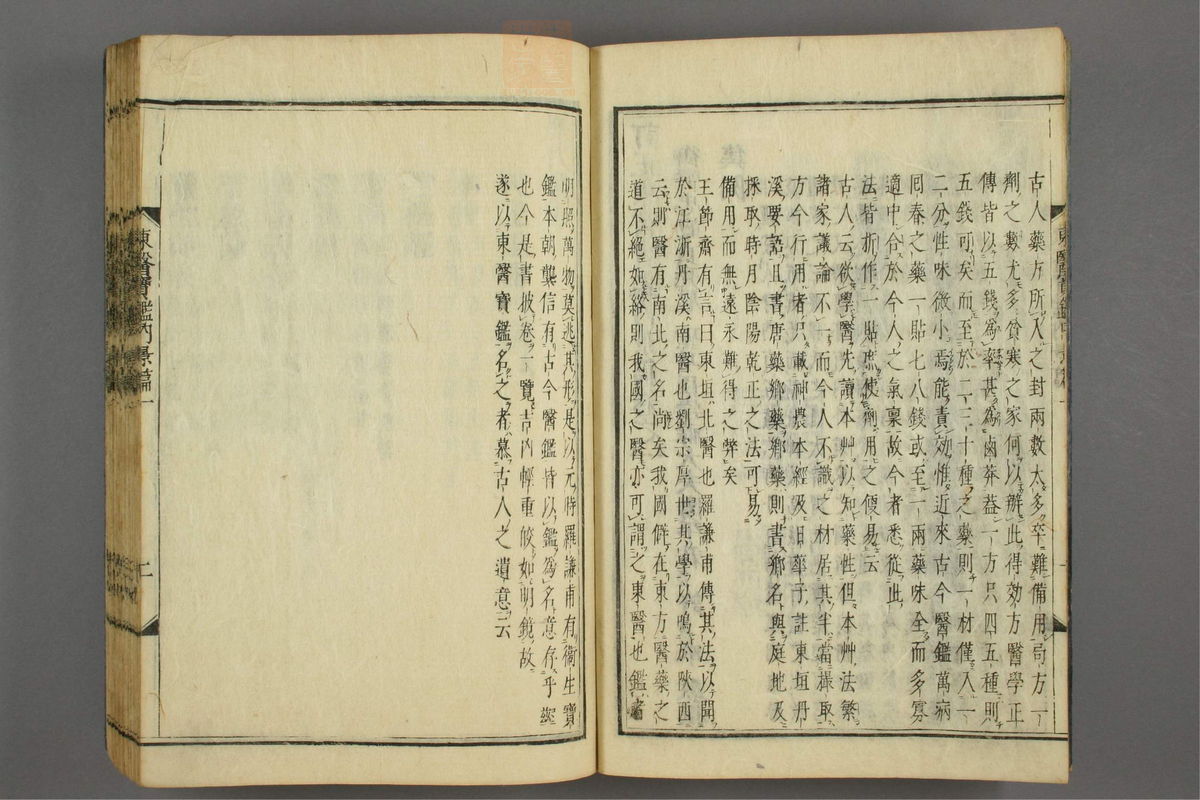 古人藥方所入之封兩數太多卒難備用局方一
劑之數尤多貧寒之家何以辦此得効方醫學正
傳皆以五錢為率甚為鹵莽盖一方只四五種則
五錢可矣而至於二三十種之藥則一材僅入一
二分性味微小焉能責効惟近來古今醫鑑萬病
囘春之藥一貼七八錢或至一兩藥味全而多寡
適中合於今人之氣禀故今者悉從此
法皆折作一貼庶使劑用之便易云
古人云欲學醫先讀本艸以知藥性但本艸法繁
諸家議論不一而今人不識之材居其半當撮取
方今行用者只載神農本經及日華子註東垣丹
溪要語且書唐藥鄉藥鄉藥則書鄉名與庭地及
採取時月陰陽乾正之法可易
備用而無遠求難得之弊矣
王節齋有言曰東垣北醫也羅謙甫傳其法以聞
於江浙丹溪南醫也劉宗厚世其學以鳴於陝西
云則醫有南北之名尚矣我國僻在東方醫藥之
道不絕如線則我國之醫亦可謂之東醫也鑑者
明照萬物莫逃其形是以元時羅謙甫有衛生寶
鑑本朝龔信有古今醫鑑皆以鑑為名意存乎
也今是書披卷一覽吉凶輕重皎如明鏡故
遂以東醫寶鑑名之者慕古人之遺意云
東醫寶鑑內景篇一
二